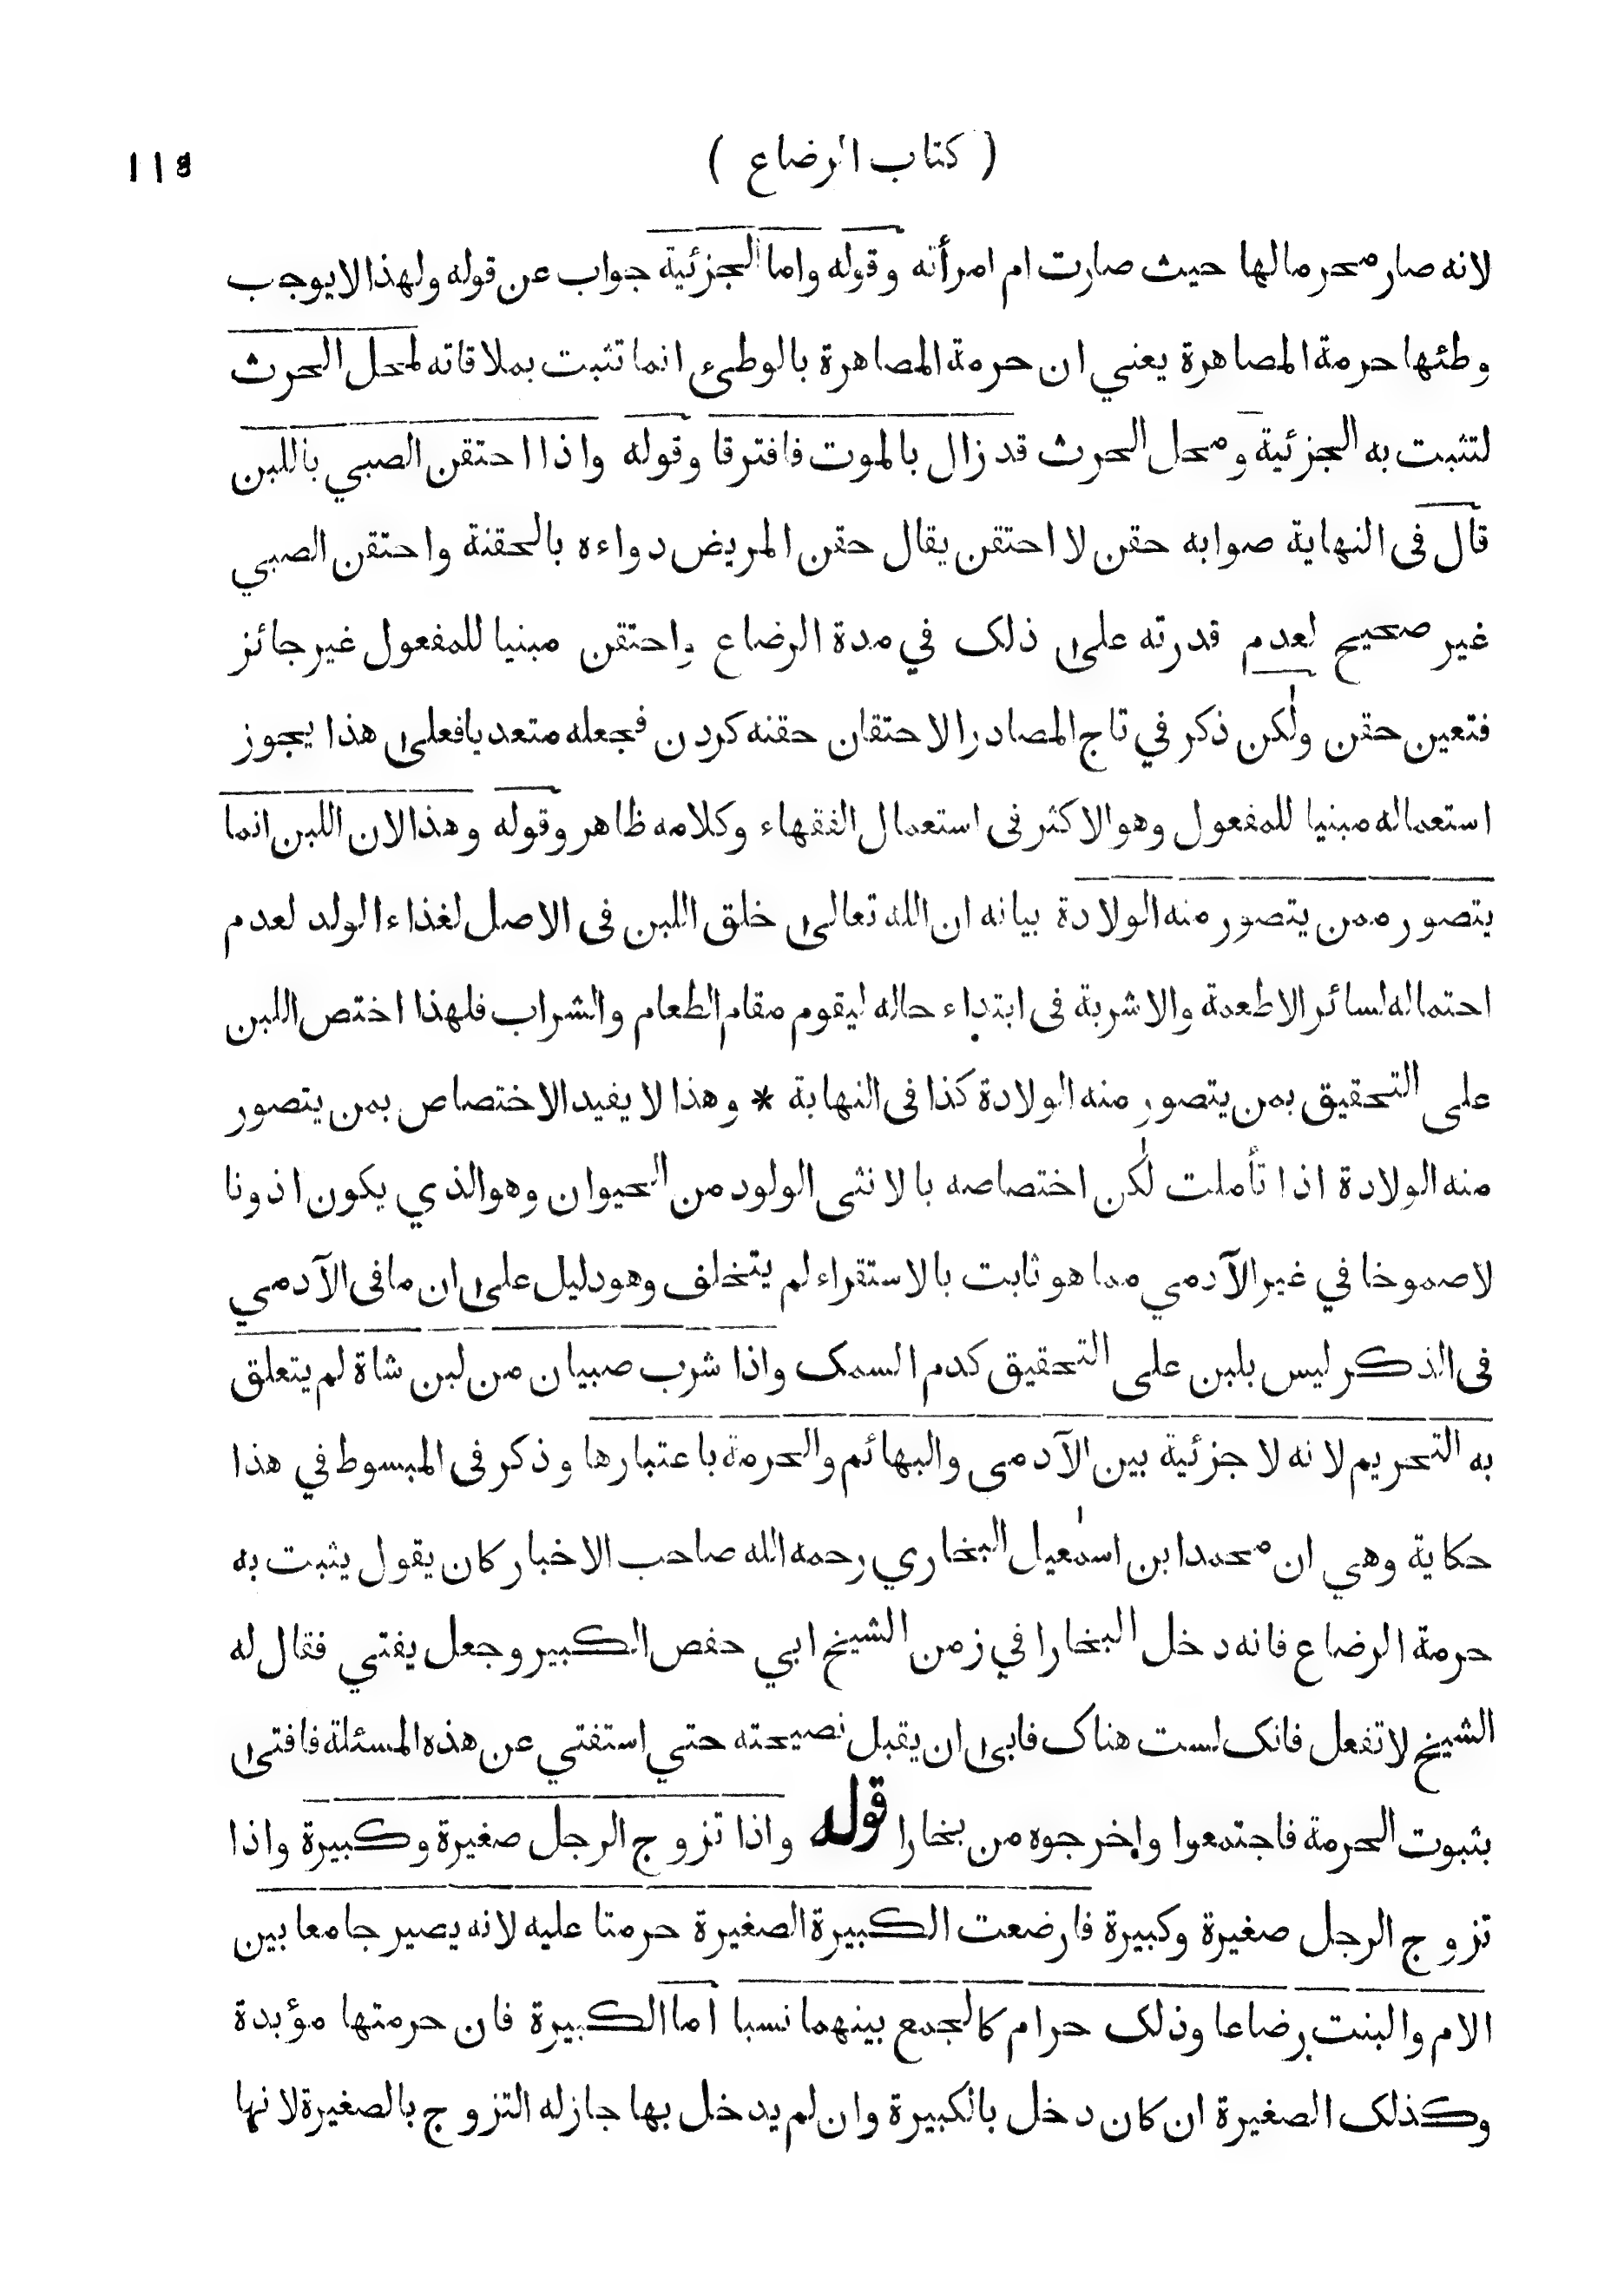 ( كتاب الرضاع )
لانه صار محرما لها حيث صارت ام امرأته وقوله واما الجزئية جواب عن قوله ولهذا لا يوجب
وطئها حرمة المصاهرة يعني ان حرمة المصاهرة بالوطيء انما تثبت بملاقاته لمحل الحرث
لتثبت به الجزئية ومحل الحرث قد زال بالموت فافترقا وقوله واذا احتقن الصبي باللبن
قال فى النهاية صوابه حقن لا احتقن يقال حقن المريض دواءه بالحقنة واحتقن الصبي
غير صحيح لعدم قدرته على ذلك في مدة الرضاع واحتقن مبنيا للمفعول غير جائز
فتعين حقن ولكن ذكر في تاج المصادر الاحتقان حقنه كردن فجعله متعديا فعلى هذا يجوز
استعماله مبنيا للمفعول وهو الاكثر فى استعمال الفقهاء وكلامه ظاهر وقوله وهذا لان اللبن انما
يتصور ممن يتصور منه الولادة بيانه ان الله تعالى خلق اللبن فى الاصل لغذاء الولد لعدم
احتماله لسائر الاطعمة والاشربة فى ابتداء حاله ليقوم مقام الطعام والشراب فلهذا اختص اللبن
على التحقيق بمن يتصور منه الولادة كذا فى النهاية * وهذا لا يفيد الاختصاص بمن يتصور
منه الولادة اذا تأملت لكن اختصاصه بالانثى الولود من الحيوان وهو الذي يكون اذونا
لا صموخا في غير الآدمي مما هو ثابت بالاستقراء لم يتخلف وهو دليل على ان ما فى الآدمي
فى الذكر ليس بلبن على التحقيق كدم السمك واذا شرب صبيان من لبن شاة لم يتعلق
به التحريم لانه لا جزئية بين الآدمى والبهائم والحرمة باعتبارها وذكر فى المبسوط في هذا
حكاية وهي ان محمد ابن اسمعيل البخاري رحمه الله صاحب الاخبار كان يقول يثبت به
حرمة الرضاع فانه دخل البخارا في زمن الشيخ ابي حفص الكبير وجعل يفتي فقال له
الشيخ لا تفعل فانك لست هناك فابى ان يقبل نصيحته حتي استفتي عن هذه المسئلة فافتى
بثبوت الحرمة فاجتمعوا واخرجوه من بخارا قوله واذا تزوج الرجل صغيرة وكبيرة واذا
تزوج الرجل صغيرة وكبيرة فارضعت الكبيرة الصغيرة حرمتا عليه لانه يصير جامعا بين
الام والبنت رضاعا وذلك حرام كالجمع بينهما نسبا اما الكبيرة فان حرمتها مؤبدة
وكذلك الصغيرة ان كان دخل بالكبيرة وان لم يدخل بها جاز له التزوج بالصغيرة لانها